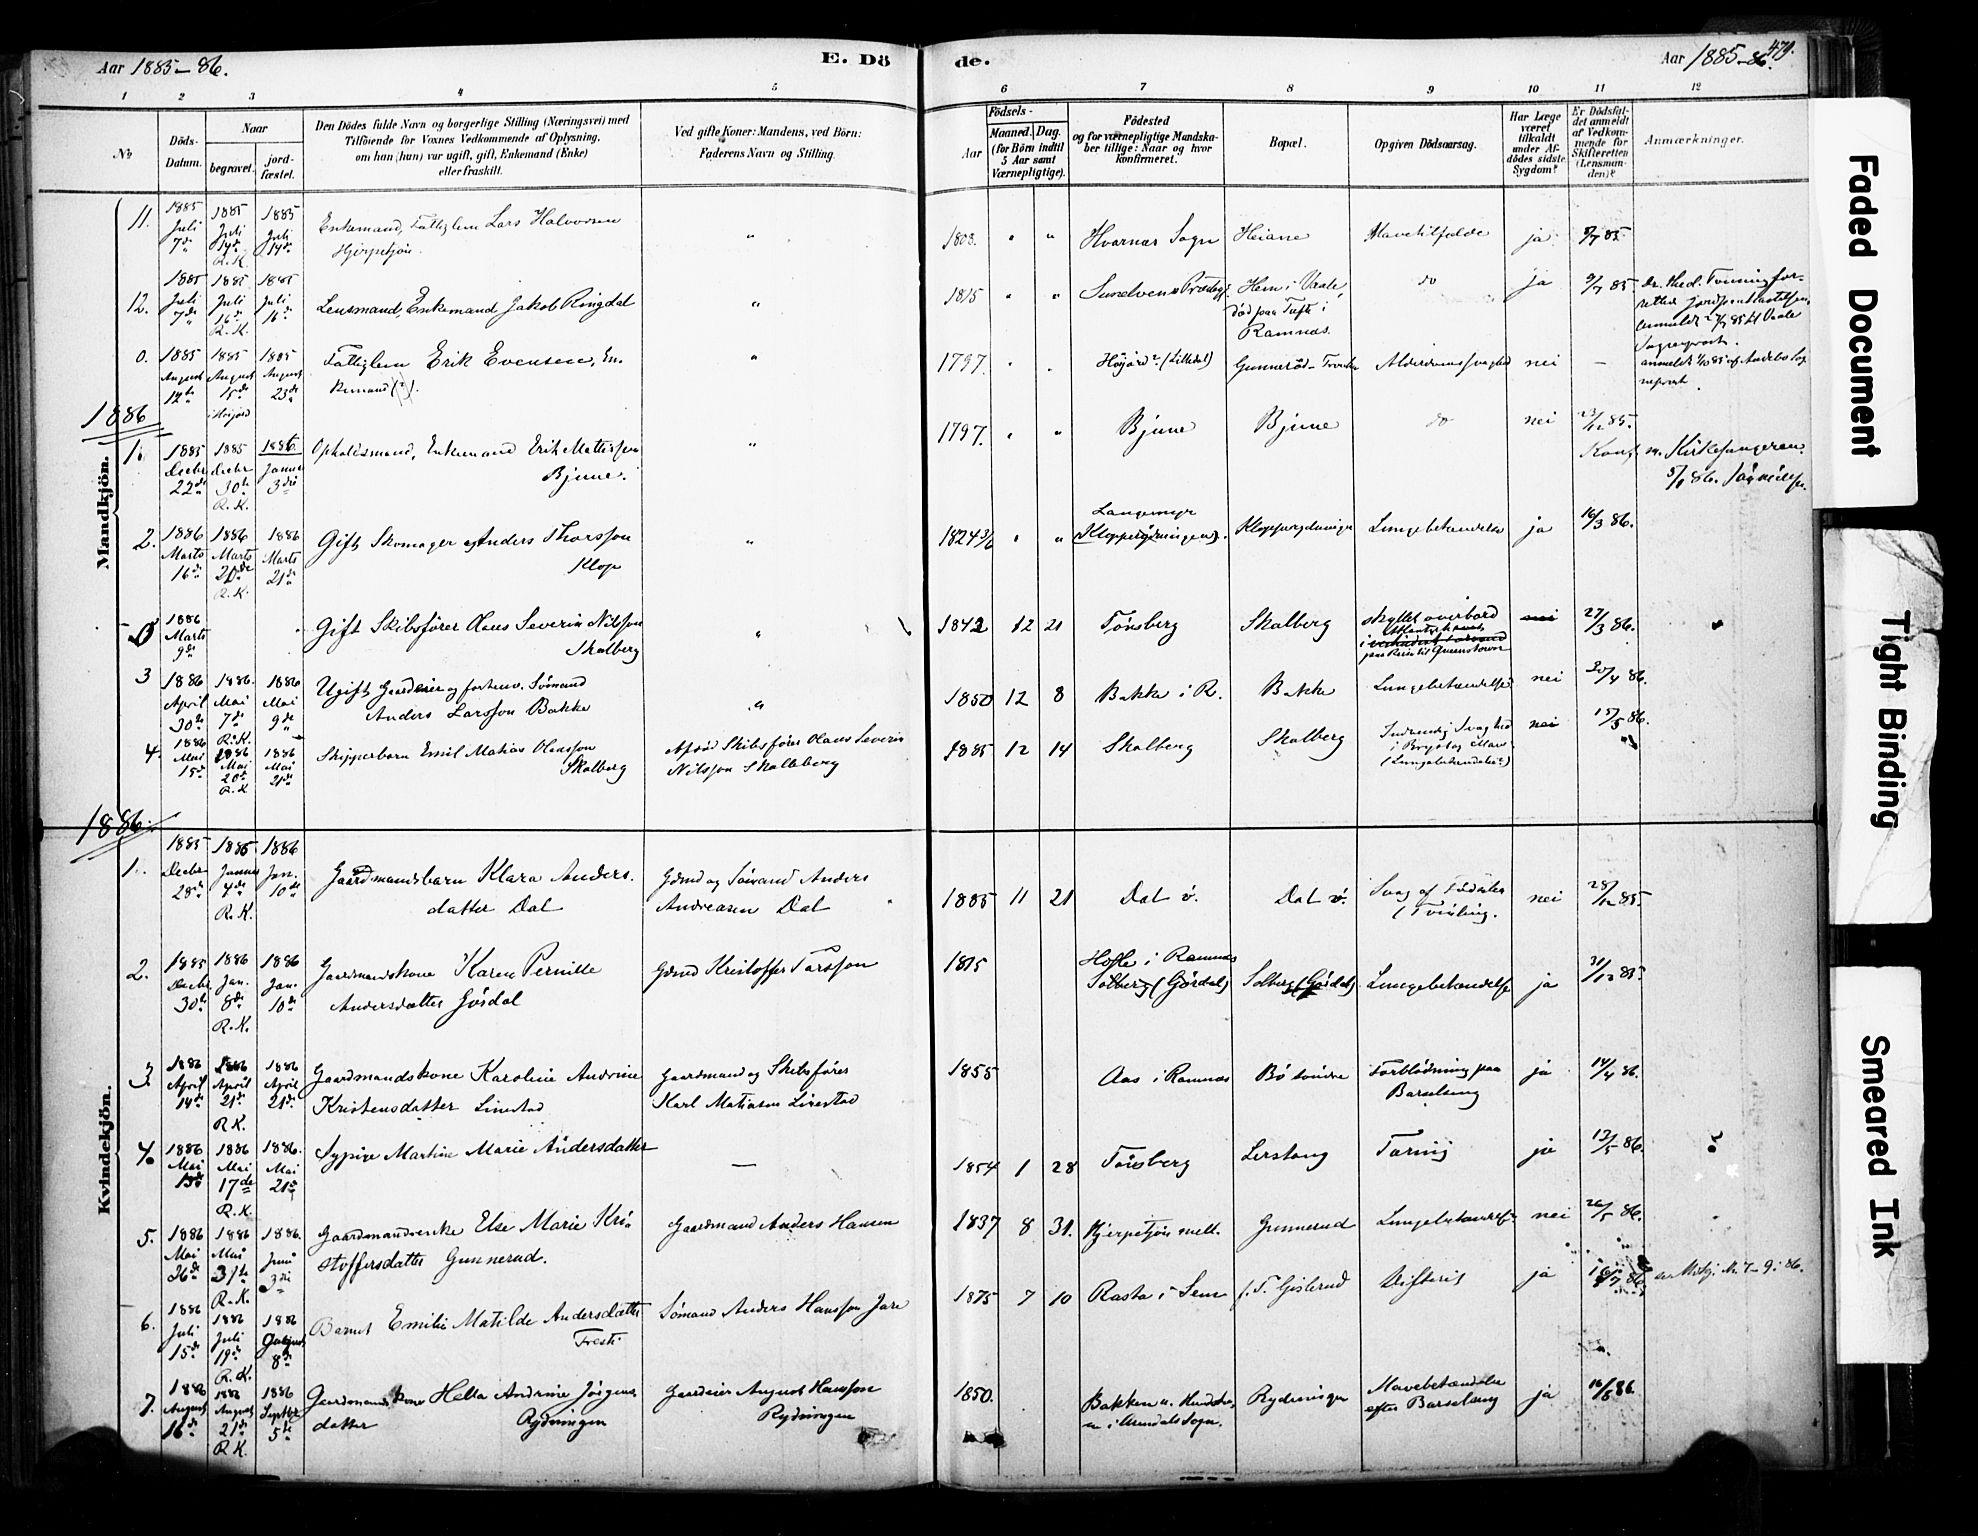 Aar 1885-86.
E. Dö
de.
Aar 1885-86.
479.
1 2 3 4 5 6 7 8 9 10 11 12
No
Döds-
Datum.
Naar
begravet.
jord-
fæstet.
Den Dödes fulde Navn og borgerlige Stilling (Næringsvei) med
Tilföiende for Voxnes Vedkommende af Oplysning,
om han (hun) var ugift, gift, Enkemand (Enke)
eller fraskilt.
Ved gifte Koner: Mandens, ved Börn:
Faderens Navn og Stilling.
Födsels-
Aar
Maaned. Dag.
(for Börn indtil
5 Aar samt
Værnepligtige).
Födested
og for værnepligtige Mandska-
ber tillige: Naar og hvor
konfirmeret.
Bopæl.
Opgiven Dödsaarsag.
Har Læge
været
tilkaldt
under Af-
dödes sidste
Sygdom?
Er Dödsfal-
det anmeldt
af Vedkom-
mende for
Skifteretten
(Lensman-
den)?
Anmærkninger.
Mandkjön.
11.
1885 Juli 7de
1885 Juli 14de R.K.
1885 Juli 14de
Enkemand, Fattiglem Lars Halvorsen
"
1808.
" "
Hvarnes Sogn
Heiane
Mavetilfælde
ja
12.
1885 Juli 7de
1885 Juli 16de R.K.
1885 Juli 16de
Lensmand, Enkemand Jakob Ringdal
"
1815
" "
Hem i Vaale,
död paa Tufte i
Ramnæs.
do
ja
9/7 85
0.
1885 August 12te
1885 August 15de
1885 August 23de
Fattiglem Erik Evensen, En-
kemand (?).
"
1797.
" "
nei
-
1886
1.
1885 Decbr 22de
1885 Decbr 30te R.K.
1886 Januar 3die
Enkemand Erik Mattisson
Bjune.
"
1797.
" "
Bjune
Bjune
do
nei
23/12 85.
m. Kirkesangeren
2.
1886 Marts 16de
1886 Marts 20de R.K.
1886 Marts 21de
Gift Skomager Anders Thorsson
Klop
"
1824
" "
Langemyr
Lungebetændelse
ja
16/3 86.
0
1886 Marts 9de
Gift Skibsförer Olaus Severin Nilsson
Skalberg
"
1842 12 21
Tönsberg
Skalberg
skyllet overbord
paa Reise til Queenstown
nei
27/3 86.
3
1886 April 30te
1886. Mai 7de R.K.
1886 Mai 9de
Ugift Gaardeier og forhenv. Sömand
Anders Larsson Bakke
"
1850 12 8
Bakke i R.
Bakke
Lungebetændelse
nei
30/4 86.
4.
1886 Mai 15de
1886 Mai 20de R.K.
1886 Mai 21de
Skipperbarn Emil Matias Olausson
Skalberg
Afdöd Skibsförer Olaus Severin
Nilsson Skalleberg
1885 12 14
Skalberg
Skalberg
Indvendig Svaghed
i Bryst og Mave
nei
15/5 86.
1886.
Kvindekjön.
1.
1885 Decbr 28de
1886 Januar 4de R.K.
1886 Jan. 10de
Gaardmandsbarn Klara Anders-
datter Dal
Gdmd og Sömand Anders
Andreasen Dal
1885 11 21
Dal ö.
Dal ö.
Svag af Födselen
(Tvilling.
nei
28/12 85.
2.
1885 Decbr 30te
1886 Jan. 8de R.K.
1886 Jan. 10de
Gaardmandskone Karen Pernille
Andersdatter Gjösdal
Gdmd Kristoffer Torsson
1815
Hofle i Ramnæs
Lungebetændelse
ja
31/12 85.
3.
1886 April 14de
1886 April 21de R.K.
1886 April 21de
Gaardmandskone Karoline Andrine
Kristensdatter Linestad
Gaardmand og Skibsförer
Karl Matiasen Linestad
1855
Aas i Ramnæs
Bö söndre
Forblödning paa
Barselseng
ja
14/4 86.
4.
1886 Mai 13de
1886 Mai 17de R.K.
1886. Mai 21de
Sypige Martine Marie Andersdatter
—
1854 1 28
Tönsberg
Lerstang
Tæring
ja
13/5 86.
?
5.
1886 Mai 26de
1886 Mai 31te R.K.
1886. Juni 3die
Gaardmandsenke Else Marie Kri-
stoffersdatter Gunnerud.
Gaardmand Anders Hansen
1837 8 31.
Hjerpetjön mell.
Gunnerud
Lungebetændelse
nei
26/5 86.
6.
1886 Juli 15de
1886 Juli 19de R.K.
1886 August 8de
Barnet Emilie Matilde Andersdatter
Sömand Anders Hansson Jare
1875 7 10
Rasta i Sem
Gislerud
Difterit
ja
7.
1886 August 16de
1886 August 21de R.K.
1886 Septbr 5te
Gaardmandskone Hella Andrine Jörgens-
datter Rydningen
Gaardeier August Hansson
Rydningen
1850.
Rydningen
Mavebetændelse
efter Barselseng
ja
16/8 86
Faded Document
Tight Binding
Smeared Ink